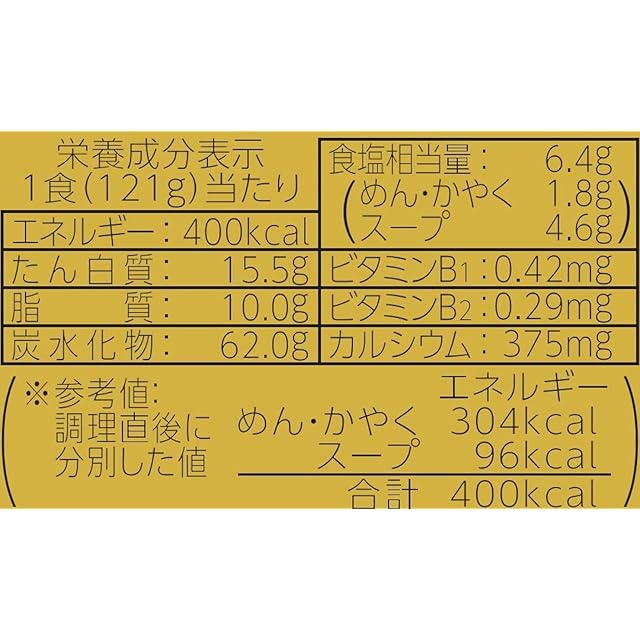 栄養成分表示
1食(121g)当たり
エネルギー:400kcal
たん白質:15.5g
脂質:10.0g
炭水化物:62.0g
食塩相当量:6.4g
(めん・かやく 1.8g
スープ 4.6g)
ビタミンB1:0.42mg
ビタミンB2:0.29mg
カルシウム:375mg
(※参考値:
調理直後に
分別した値
エネルギー
めん・かやく 304kcal
スープ 96kcal
合計 400kcal)